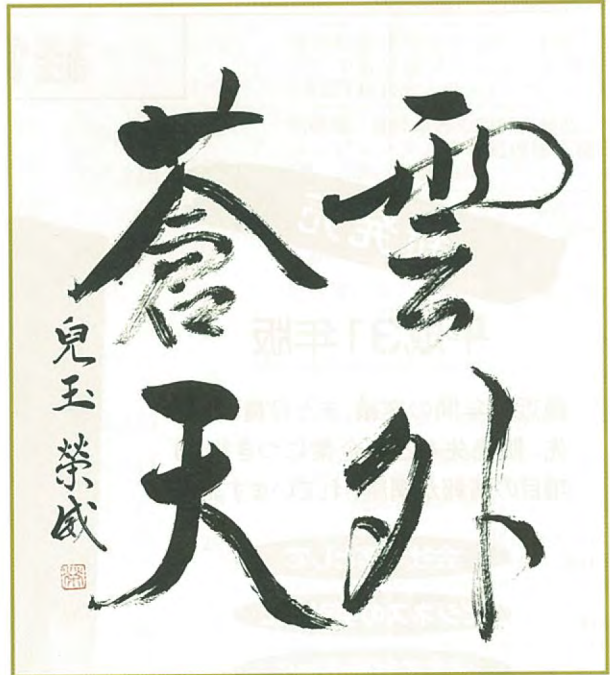 雲外
蒼天
兒玉 榮威